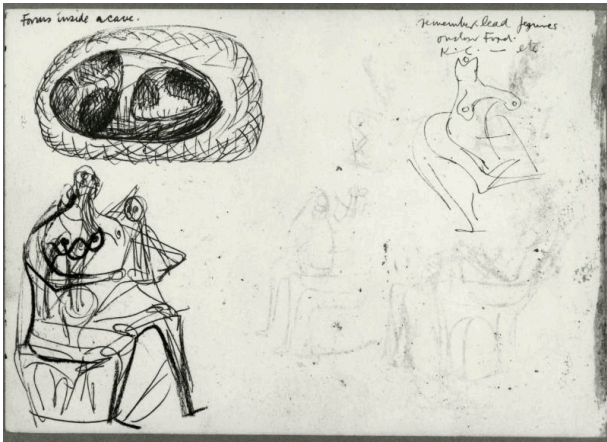 Forms inside a cave.
remember lead figures
onslow Ford.
K. C. — etc